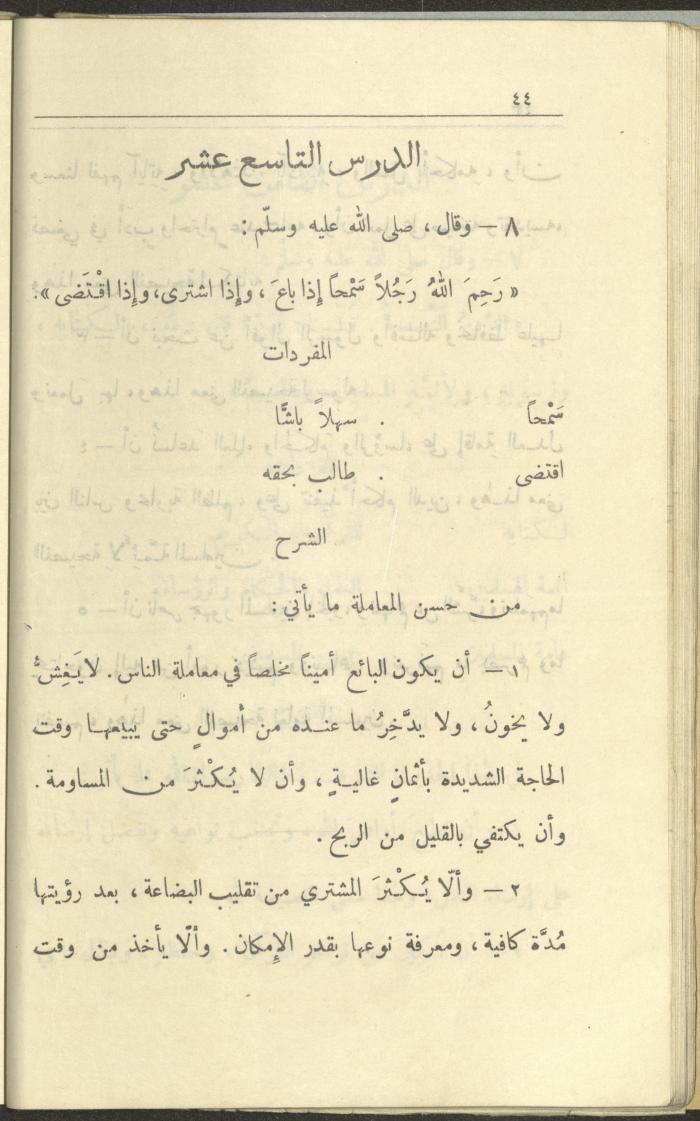 ٤٤
الدرس التاسع عشر
٨ — وقال، صلى الله عليه وسلّم:
« رَحِمَ اللهُ رَجُلاً سَمْحاً إِذا باعَ، وإِذا اشترى، وإِذا اقْتَضى ».
المفردات
سَمْحاً . سهلاً باشًّا
اقتضى . طالب بحقه
الشرح
من حسن المعاملة ما يأتي:
١ — أن يكون البائع أميناً مخلصاً في معاملة الناس. لا يَغِشُّ
ولا يخونُ، ولا يدَّخِرُ ما عنده من أموالٍ حتى يبيعها وقت
الحاجة الشديدة بأثمانٍ غاليةٍ، وأن لا يُكْثرَ من المساومة.
وأن يكتفي بالقليل من الربح.
٢ — وألّا يُكْثرَ المشتري من تقليب البضاعة، بعد رؤيتها
مُدَّة كافية، ومعرفة نوعها بقدر الإِمكان. وألّا يأخذ من وقت